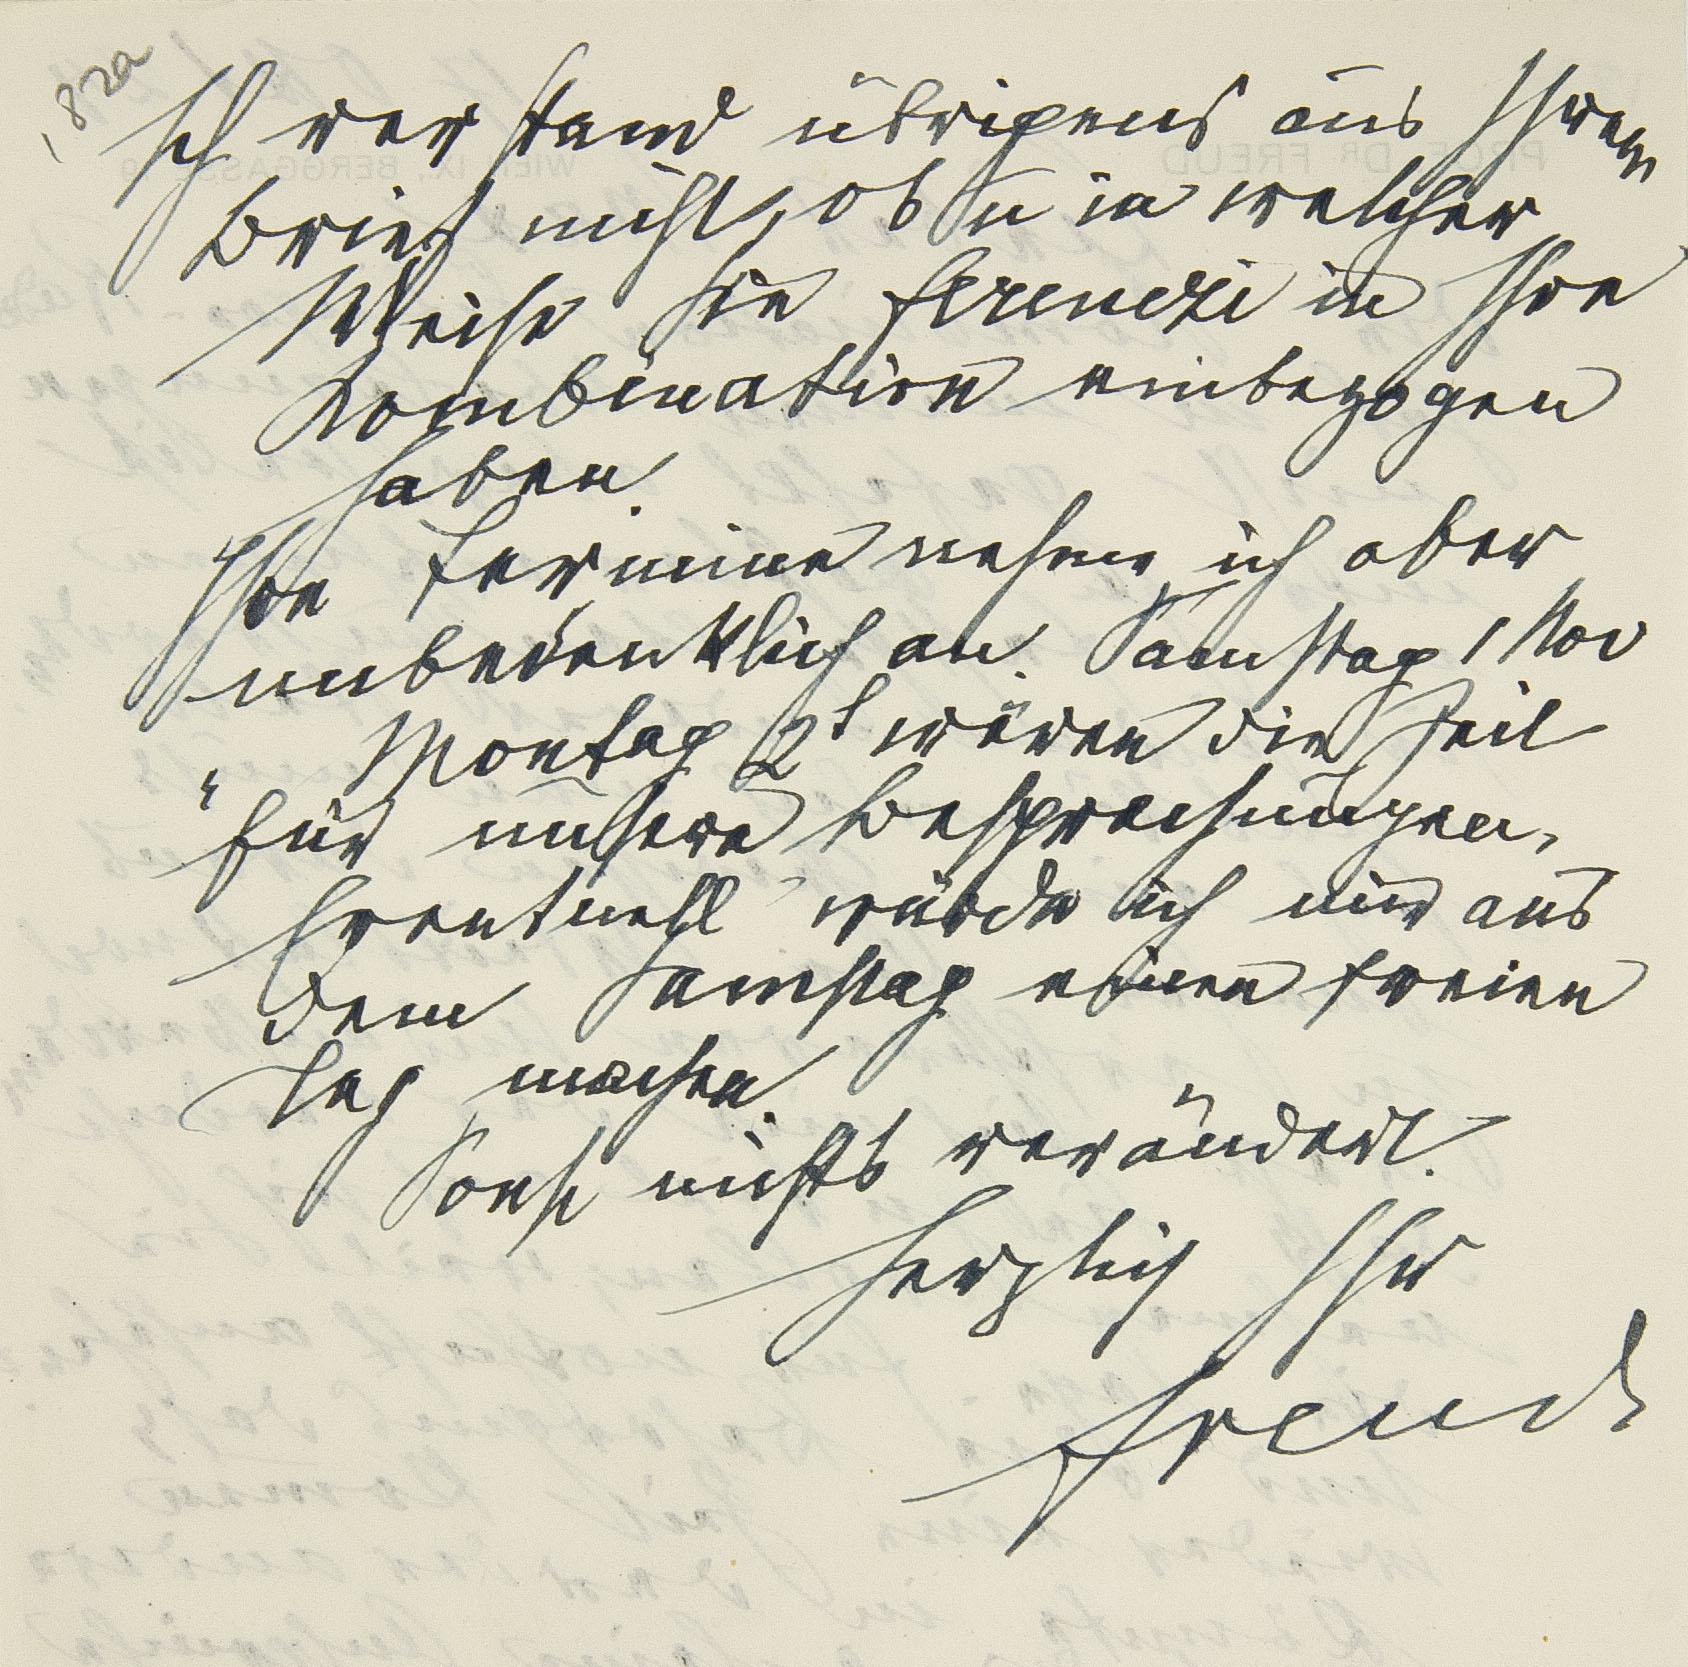 182a
Ich verstand übrigens aus Ihrem
Brief nicht, ob u in welcher
Weise Sie Ferenczi in Ihre
Kombination einbezogen
haben.
Ihre Termine nehme ich aber
unbedenklich an. Samstag 1 Nov
Montag 2t wären die Zeit
für unsere Besprechungen,
Eventuell würde ich mir aus
dem Samstag einen freien
Tag machen.
Sonst nichts verändert.
Herzlich Ihr
Freud
PROF. DR FREUD
WIEN IX., BERGGASSE 19